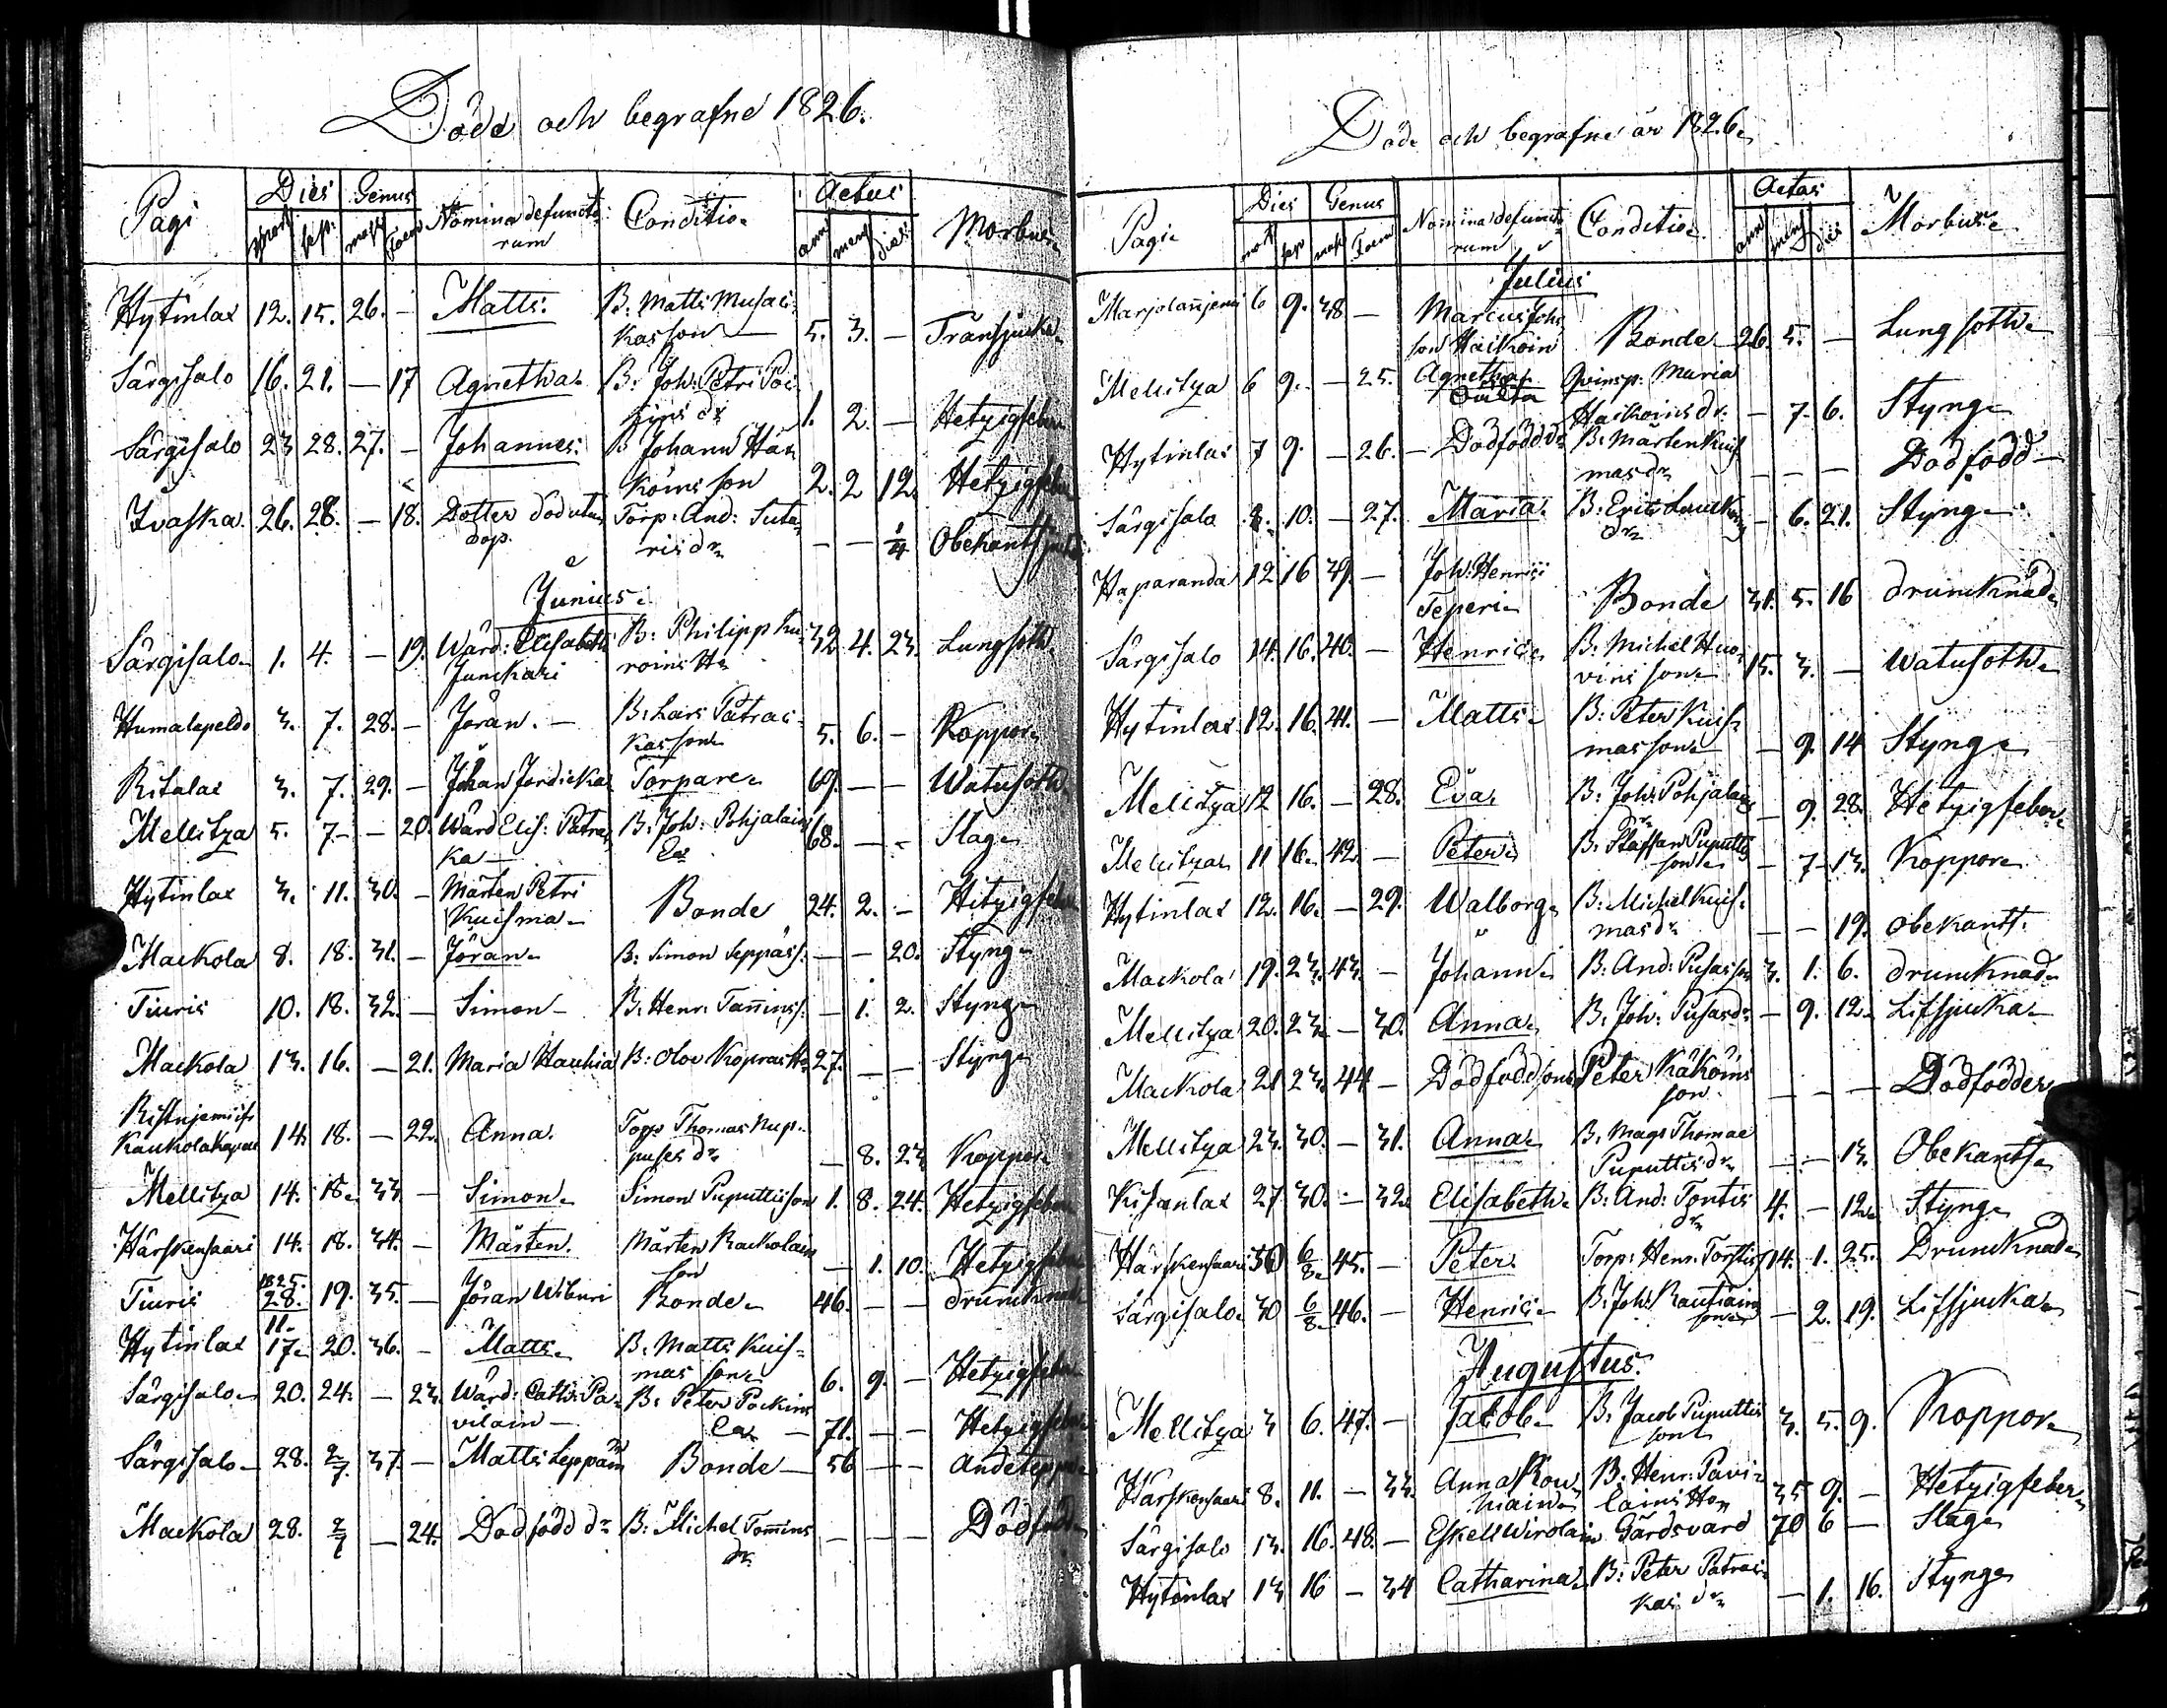 Döde och begrafne 1826.
Pagi Dies Genus Nomina defuncto Conditio Aetas Morbus
mort. sep. mask Foem rum ann mens dies
Hytinlax 12. 15. 26. — Matts. B. Matts Musac
kas son 5. 3. — Trånsjuka
Särgisalo 16. 21. — 17 Agnetha B. Joh. Petri Poi
zins dr 1. 2. — Hetzigfeber
Särgisalo 23 28. 27. — Johannes. B Johann Hän
köins son 2. 2 12. Hetzigfeber
Ivaska. 26. 28. — 18. Dotter död utan Torp. And: Suta
dop. ris dr — — 1/4 Obekant sjukd
Junius.
Särgisalo 1. 4. — 19. Wärd: Elisabeth B: Philipp Hu
Junckari roins H 32 4. 23. Lungsoth
Humalapeldo 3. 7. 28. — Jöran. — B. Lars Patrac
kas son 5. 6. — Koppor
Ritalax 3. 7. 29. — Johan Jordicka Torpare 69. — — Watusoth
Mellitza 5. 7 — 20. Wärd Elis: Patrac B. Joh: Pohjalain
ka Ea 68. — — Slag
Hytinlax 3. 11. 30. — Mårten Petri
Kuisma Bonde 24. 2. — Hitzigfeber
Mackola 8. 18. 31. — Jöran B. Simon Seppäs s. — — 20. Styng
Tiuris 10. 18. 32. — Simon — B. Henr. Tanins s. — 1. 2. Styng
Mackola 13. 16. — 21. Maria Hauhia B: Olov Kopras H 27. — — Styng
Ristnjemiis
Kaukola Kapell 14. 18. — 22. Anna. Torp. Thomas Nup
puses dr — 8. 23 Koppor
Mellitza 14. 18. 33 — Simon Simon Puputtis son 1. 8. 24. Hetzigfeber
Härskensaari 14. 18. 34. — Mårten. Mårten Rackolain
son — 1. 10. Hetzigfeber
Tiuris 1825. 28. 11. 19. 35. — Jöran Wiburi Bonde 46. — — drunknade
Hytinlax 17. 20. 36. — Matts B. Matts Kuis
mas son 6. 9. — Hetzigfeber
Särgisalo 20. 24. — 23. Wärd: Cath: Pa B. Peter Pockins
vilain — Ea — 71. — — Hetzigfeber
Särgisalo 28. 2/7. 37. — Matts Leppäin Bonde — 56 — —
Mackola 28. 2/7 — 24. Dödfödd dr B. Michel Tomins
dr — — — Dödfödd
Döde och begrafne år 1826
Pagi Dies Genus Nomina defuncto Conditio Aetas Morbus
mort sep mask Foem rum ann mens dies
Julius
Marjolanjemi 6 9. 38 — Marcus Joh:
son Haikoin Bonde 26. 5. — Lungsoth
Mellitza 6 9. — 25. Agnetha Qvinsp. Maria
oäkta Haikoins dr. — 7. 6. Styng
Hytinlax 7 9. — 26. — Dödfödd dr B. Mårten Kuis
mas dr — — — Dödfödd
Särgisalo 8. 10. — 27. Maria B. Eric Lauck
dr — 6. 21. Styng
Haparanda 12 16 39. — Joh: Henrici
Teperi Bonde 31. 5. 16 drunknade
Särgisalo 14. 16. 40. — Henric B. Michel Huo
vins son 15. 3. — Watusoth
Hytinlax 12. 16. 41. — Matts B: Peter Kuis
mas son — 9. 14 Styng
Mellitza 12 16. — 28. Eva B: Joh: Pohjalains
dr — 9. 28. Hetzigfeber
Mellitza 11 16. 42. — Peter B. Staffan Puputtis
son — 7 13. Koppor
Hytinlax 12. 16. — 29. Walborg B: Michel Kuis
mas dr — — 19. obekant.
Mackola 19. 23. 43. — Johann B: And: Pusas son 3. 1. 6. drunknade
Mellitza 20. 23 — 30. Anna B. Joh: Pusas dr — 9. 12 Lifsjuka
Mackola 21 23. 44 — Dödfödd son Peter Käköins
son — — — Dödfödder
Mellitza 23. 30. — 31. Anna B. Mags Thomae
Puputtis dr — — 13. Obekant
Kisanlax 27 30. — 32 Elisabeth B: And: Tontis
dr 4. — 12. Styng
Härskensaari 30 6/8. 45. — Peter Torp. Henr: Torstis s 14. 1. 25. Drunknade
Särgisalo 30 6/8. 46. — Henric B. Joh: Rautiains
son — 2. 19. Lifsjuka
Augustus
Mellitza 3 6. 47. — Jacob B. Jacob Puputtis
son 3. 5. 9. Koppor
Härskensaari 8. 11. — 33. Anna Rou B. Henr: Pavi
hiain lains H 35 9. — Hetzigfeber
Särgisalo 13. 16. 48. — Eskell Wirolain Gårdsvard 70 6 — Slag
Hytinlax 13 16 — 34 Catharina B: Peter Patrac
kas dr — 1. 16. Styng